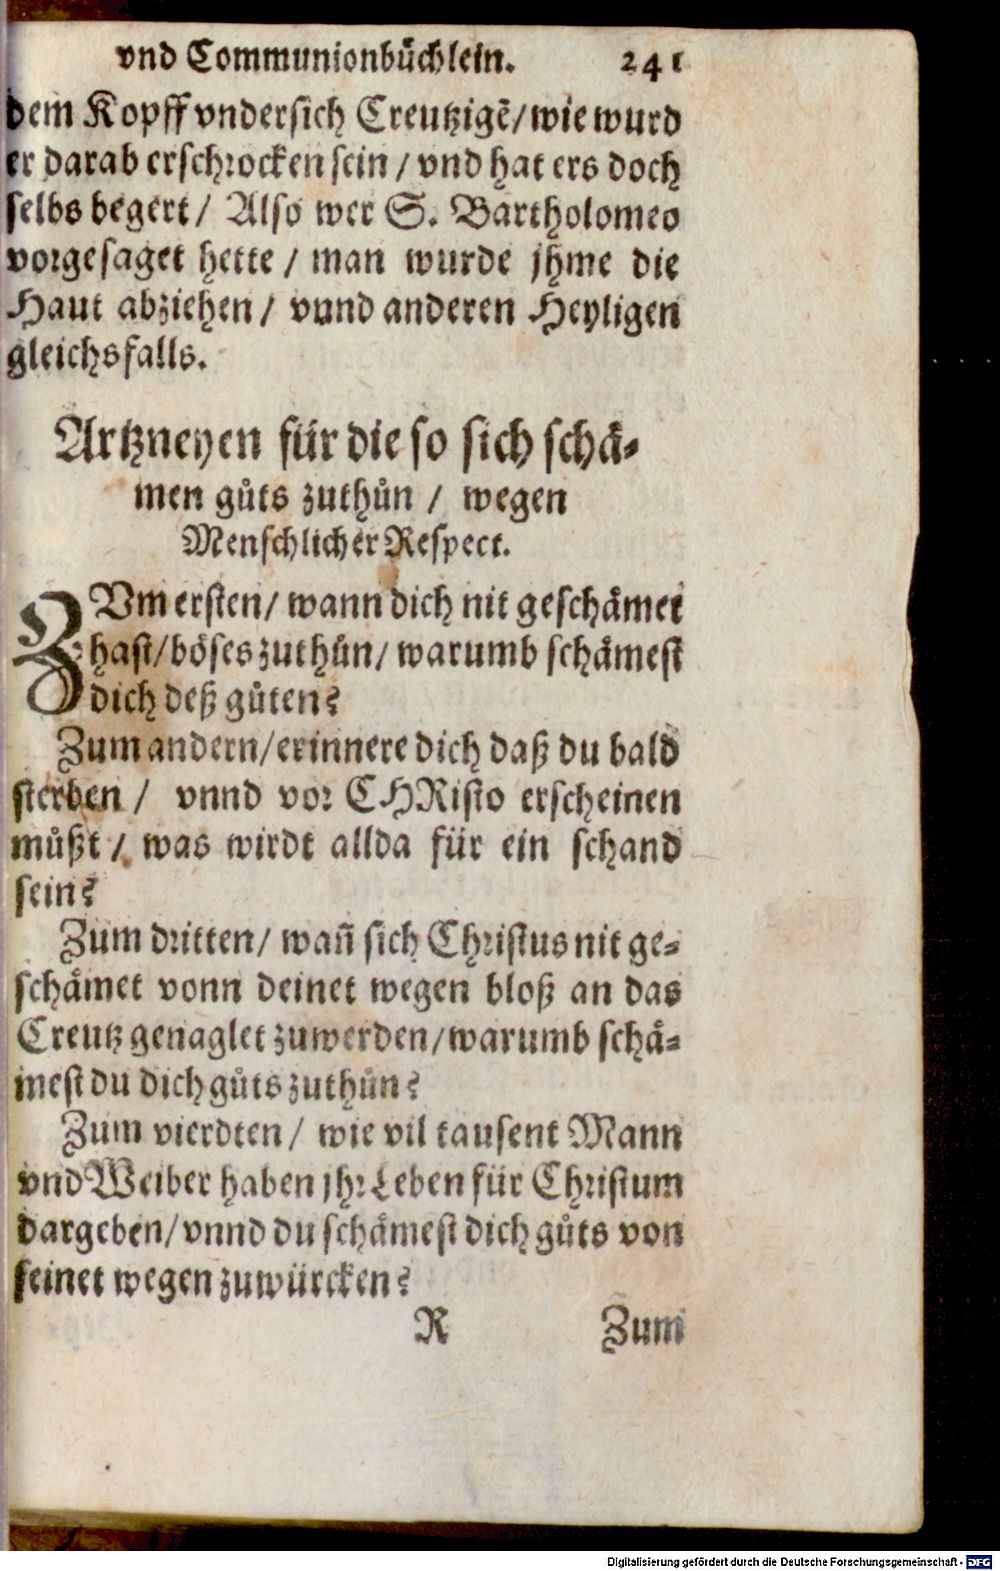 vnd Communionbuͤchlein. 241
dem Kopff vndersich Creutzigẽ/ wie wurd
er darab erschrocken sein / vnd hat ers doch
selbs begert / Also wer S. Bartholomeo
vorgesaget hette / man wurde jhme die
Haut abziehen / vnnd anderen Heyligen
gleichsfalls.
Artzneyen für die so sich schaͤ-
men guͦts zuthuͦn / wegen
Menschlicher Respect.
ZVm ersten/ wann dich nit geschaͤmet
hast/ boͤses zuthuͦn/ warumb schaͤmest
dich deß guͦten?
Zum andern/ erinnere dich daß du bald
sterben / vnnd vor CHRisto erscheinen
muͤßt / was wirdt allda für ein schand
sein?
Zum dritten/ wañ sich Christus nit ge-
schaͤmet vonn deinet wegen bloß an das
Creutz genaglet zuwerden/ warumb schaͤ-
mest du dich guͦts zuthuͦn?
Zum vierdten / wie vil tausent Mann
vnd Weiber haben jhr Leben für Christum
dargeben/ vnnd du schaͤmest dich guͦts von
seinet wegen zuwürcken?
R Zum
Digitalisierung gefördert durch die Deutsche Forschungsgemeinschaft - DFG